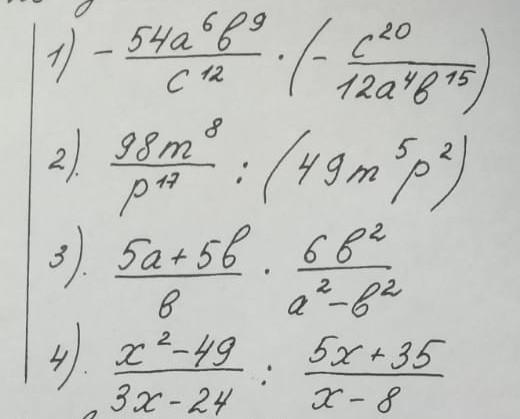 1) - 54a⁶b⁹/c¹² · (- c²⁰/12a⁴b¹⁵)
2). 98m⁸/p¹⁷ : (49m⁵p²)
3). 5a+5b/b · 6b²/a²-b²
4). x²-49/3x-24 : 5x+35/x-8